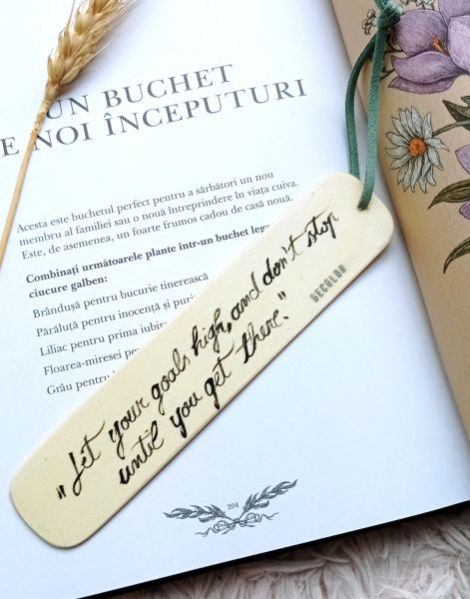 UN BUCHET
E NOI ÎNCEPUTURI
Acesta este buchetul perfect pentru a sărbători un nou
membru al familiei sau o nouă întreprindere în viața cuiva.
Este, de asemenea, un foarte frumos cadou de casă nouă.
Combinați următoarele plante într-un buchet
ciucure galben:
Brândușă pentru bucurie tinerească
Păráluță pentru inocență și
Liliac pentru prima
Floarea-miresei
Grâu pentru
"Set your goals high, and don't stop
until you get there."
DECOLOR
204